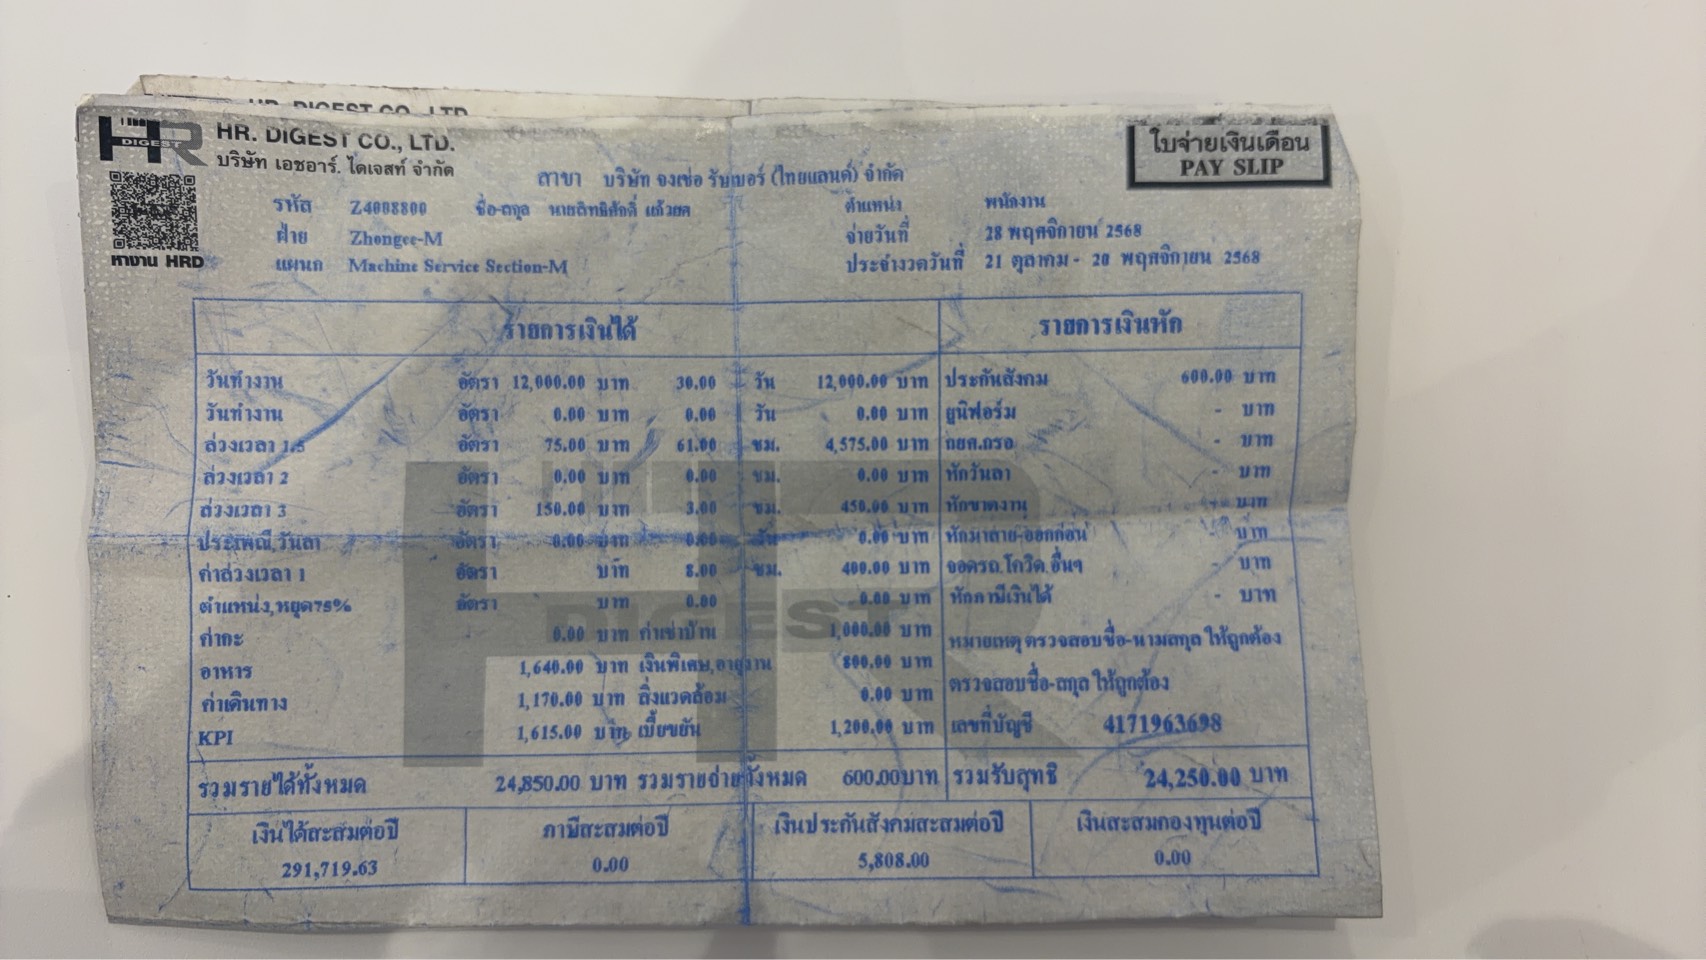 HR. DIGEST CO., LTD.
HR DIGEST
HR. DIGEST CO., LTD.
บริษัท เอชอาร์. ไดเจสท์ จำกัด
ใบจ่ายเงินเดือน
PAY SLIP
หางาน HRD
สาขา บริษัท จงเซ่อ รับเบอร์ (ไทยแลนด์) จำกัด
รหัส Z4008800 ชื่อ-สกุล นายสิทธิศักดิ์ แก้วยศ ตำแหน่ง พนักงาน
ฝ่าย Zhongce-M จ่ายวันที่ 28 พฤศจิกายน 2568
แผนก Machine Service Section-M ประจำงวดวันที่ 21 ตุลาคม - 20 พฤศจิกายน 2568
รายการเงินได้ รายการเงินหัก
วันทำงาน อัตรา 12,000.00 บาท 30.00 วัน 12,000.00 บาท ประกันสังคม 600.00 บาท
วันทำงาน อัตรา 0.00 บาท 0.00 วัน 0.00 บาท ยูนิฟอร์ม - บาท
ล่วงเวลา 1.5 อัตรา 75.00 บาท 61.00 ชม. 4,575.00 บาท กยศ.กรอ - บาท
ล่วงเวลา 2 อัตรา 0.00 บาท 0.00 ชม. 0.00 บาท หักวันลา - บาท
ล่วงเวลา 3 อัตรา 150.00 บาท 3.00 ชม. 450.00 บาท หักขาดงาน - บาท
ประเพณี,วันลา อัตรา 0.00 บาท 0.00 วัน 0.00 บาท หักมาสาย-ออกก่อน - บาท
ค่าล่วงเวลา 1 อัตรา บาท 8.00 ชม. 400.00 บาท จอดรถ.โควิด.อื่นๆ - บาท
ตำแหน่ง,หยุด75% อัตรา บาท 0.00 0.00 บาท หักภาษีเงินได้ - บาท
ค่ากะ 0.00 บาท ค่าเช่าบ้าน 1,000.00 บาท หมายเหตุ ตรวจสอบชื่อ-นามสกุล ให้ถูกต้อง
อาหาร 1,640.00 บาท เงินพิเศษ,อายุงาน 800.00 บาท ตรวจสอบชื่อ-สกุล ให้ถูกต้อง
ค่าเดินทาง 1,170.00 บาท สิ่งแวดล้อม 0.00 บาท
KPI 1,615.00 บาท เบี้ยขยัน 1,200.00 บาท เลขที่บัญชี 4171963698
รวมรายได้ทั้งหมด 24,850.00 บาท รวมรายจ่ายทั้งหมด 600.00บาท รวมรับสุทธิ 24,250.00 บาท
เงินได้สะสมต่อปี ภาษีสะสมต่อปี เงินประกันสังคมสะสมต่อปี เงินสะสมกองทุนต่อปี
291,719.63 0.00 5,808.00 0.00
HR DIGEST